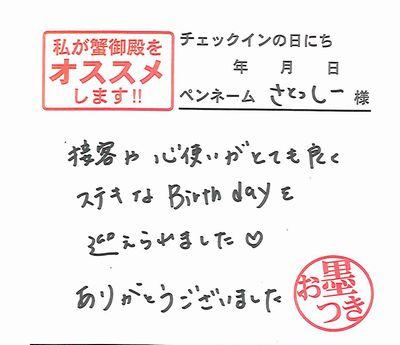 私が蟹御殿を
オススメ
します!!
チェックインの日にち
年 月 日
ペンネーム さとっしー 様
接客や心使いがとても良く
ステキなBirthdayを
迎えられました♡
ありがとうございました
お墨つき